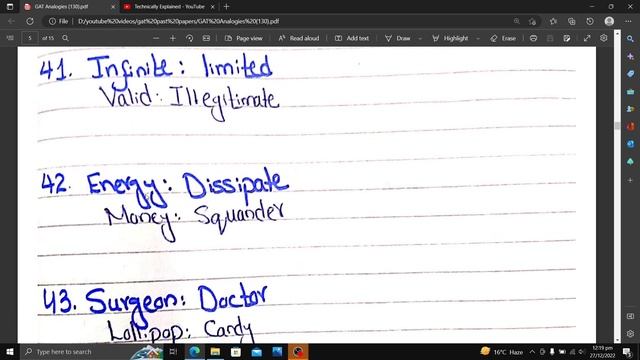 GAT Analogies (130).pdf
Technically Explained - YouTube
File D:/youtube%20videos/gat%20past%20papers/GAT%20Analogies%20(130).pdf
5 of 15 Page view Read aloud Add text Draw Highlight Erase
41. Infinite: limited
Valid: Illegitimate
42. Energy: Dissipate
Money: Squander
43. Surgeon: Doctor
Lollipop: Candy
Type here to search
16°C Haze
12:19 pm
27/12/2022